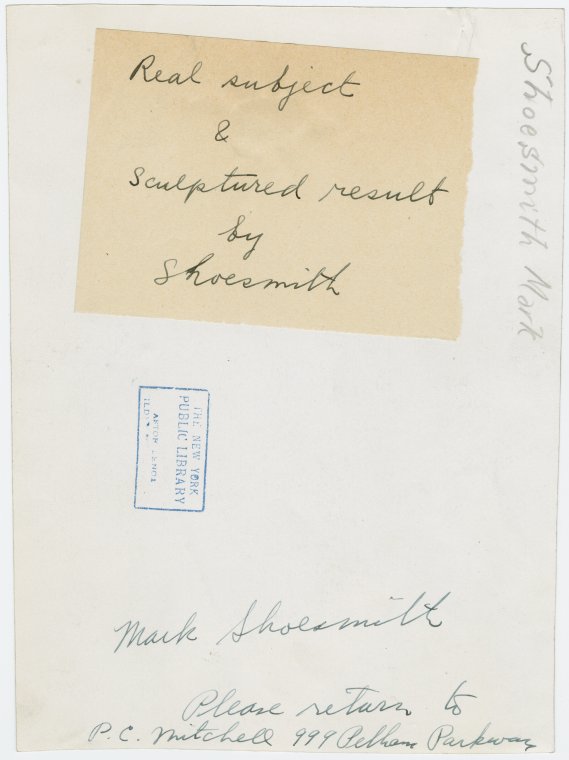 Real subject
&
Sculptured result
by
Shoesmith
Shoesmith Mark
THE NEW YORK
PUBLIC LIBRARY
ASTOR LENOX
Mark Shoesmith
Please return to
P.C. Mitchell 999 Pelham Parkway